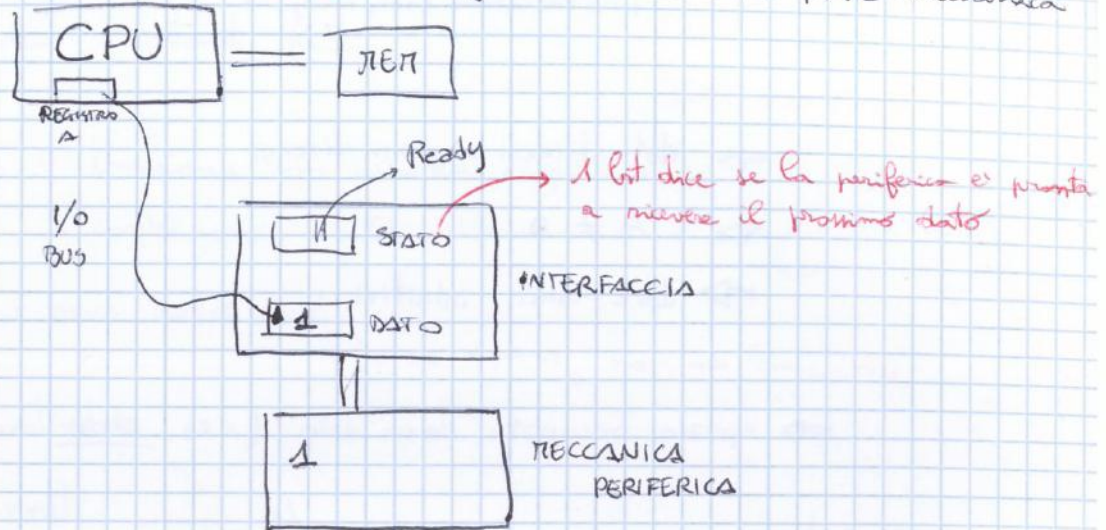 CPU
MEM
REGISTRO
A
Ready
1 bit dice se la periferica e' pronta
a ricevere il prossimo dato
I/O
BUS
STATO
INTERFACCIA
1 DATO
1
MECCANICA
PERIFERICA